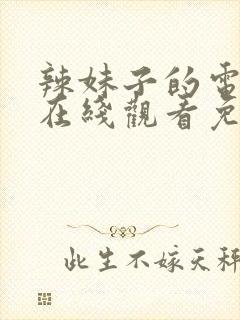 辣妹子的電
在綫觀看免
此生不嫁天秤